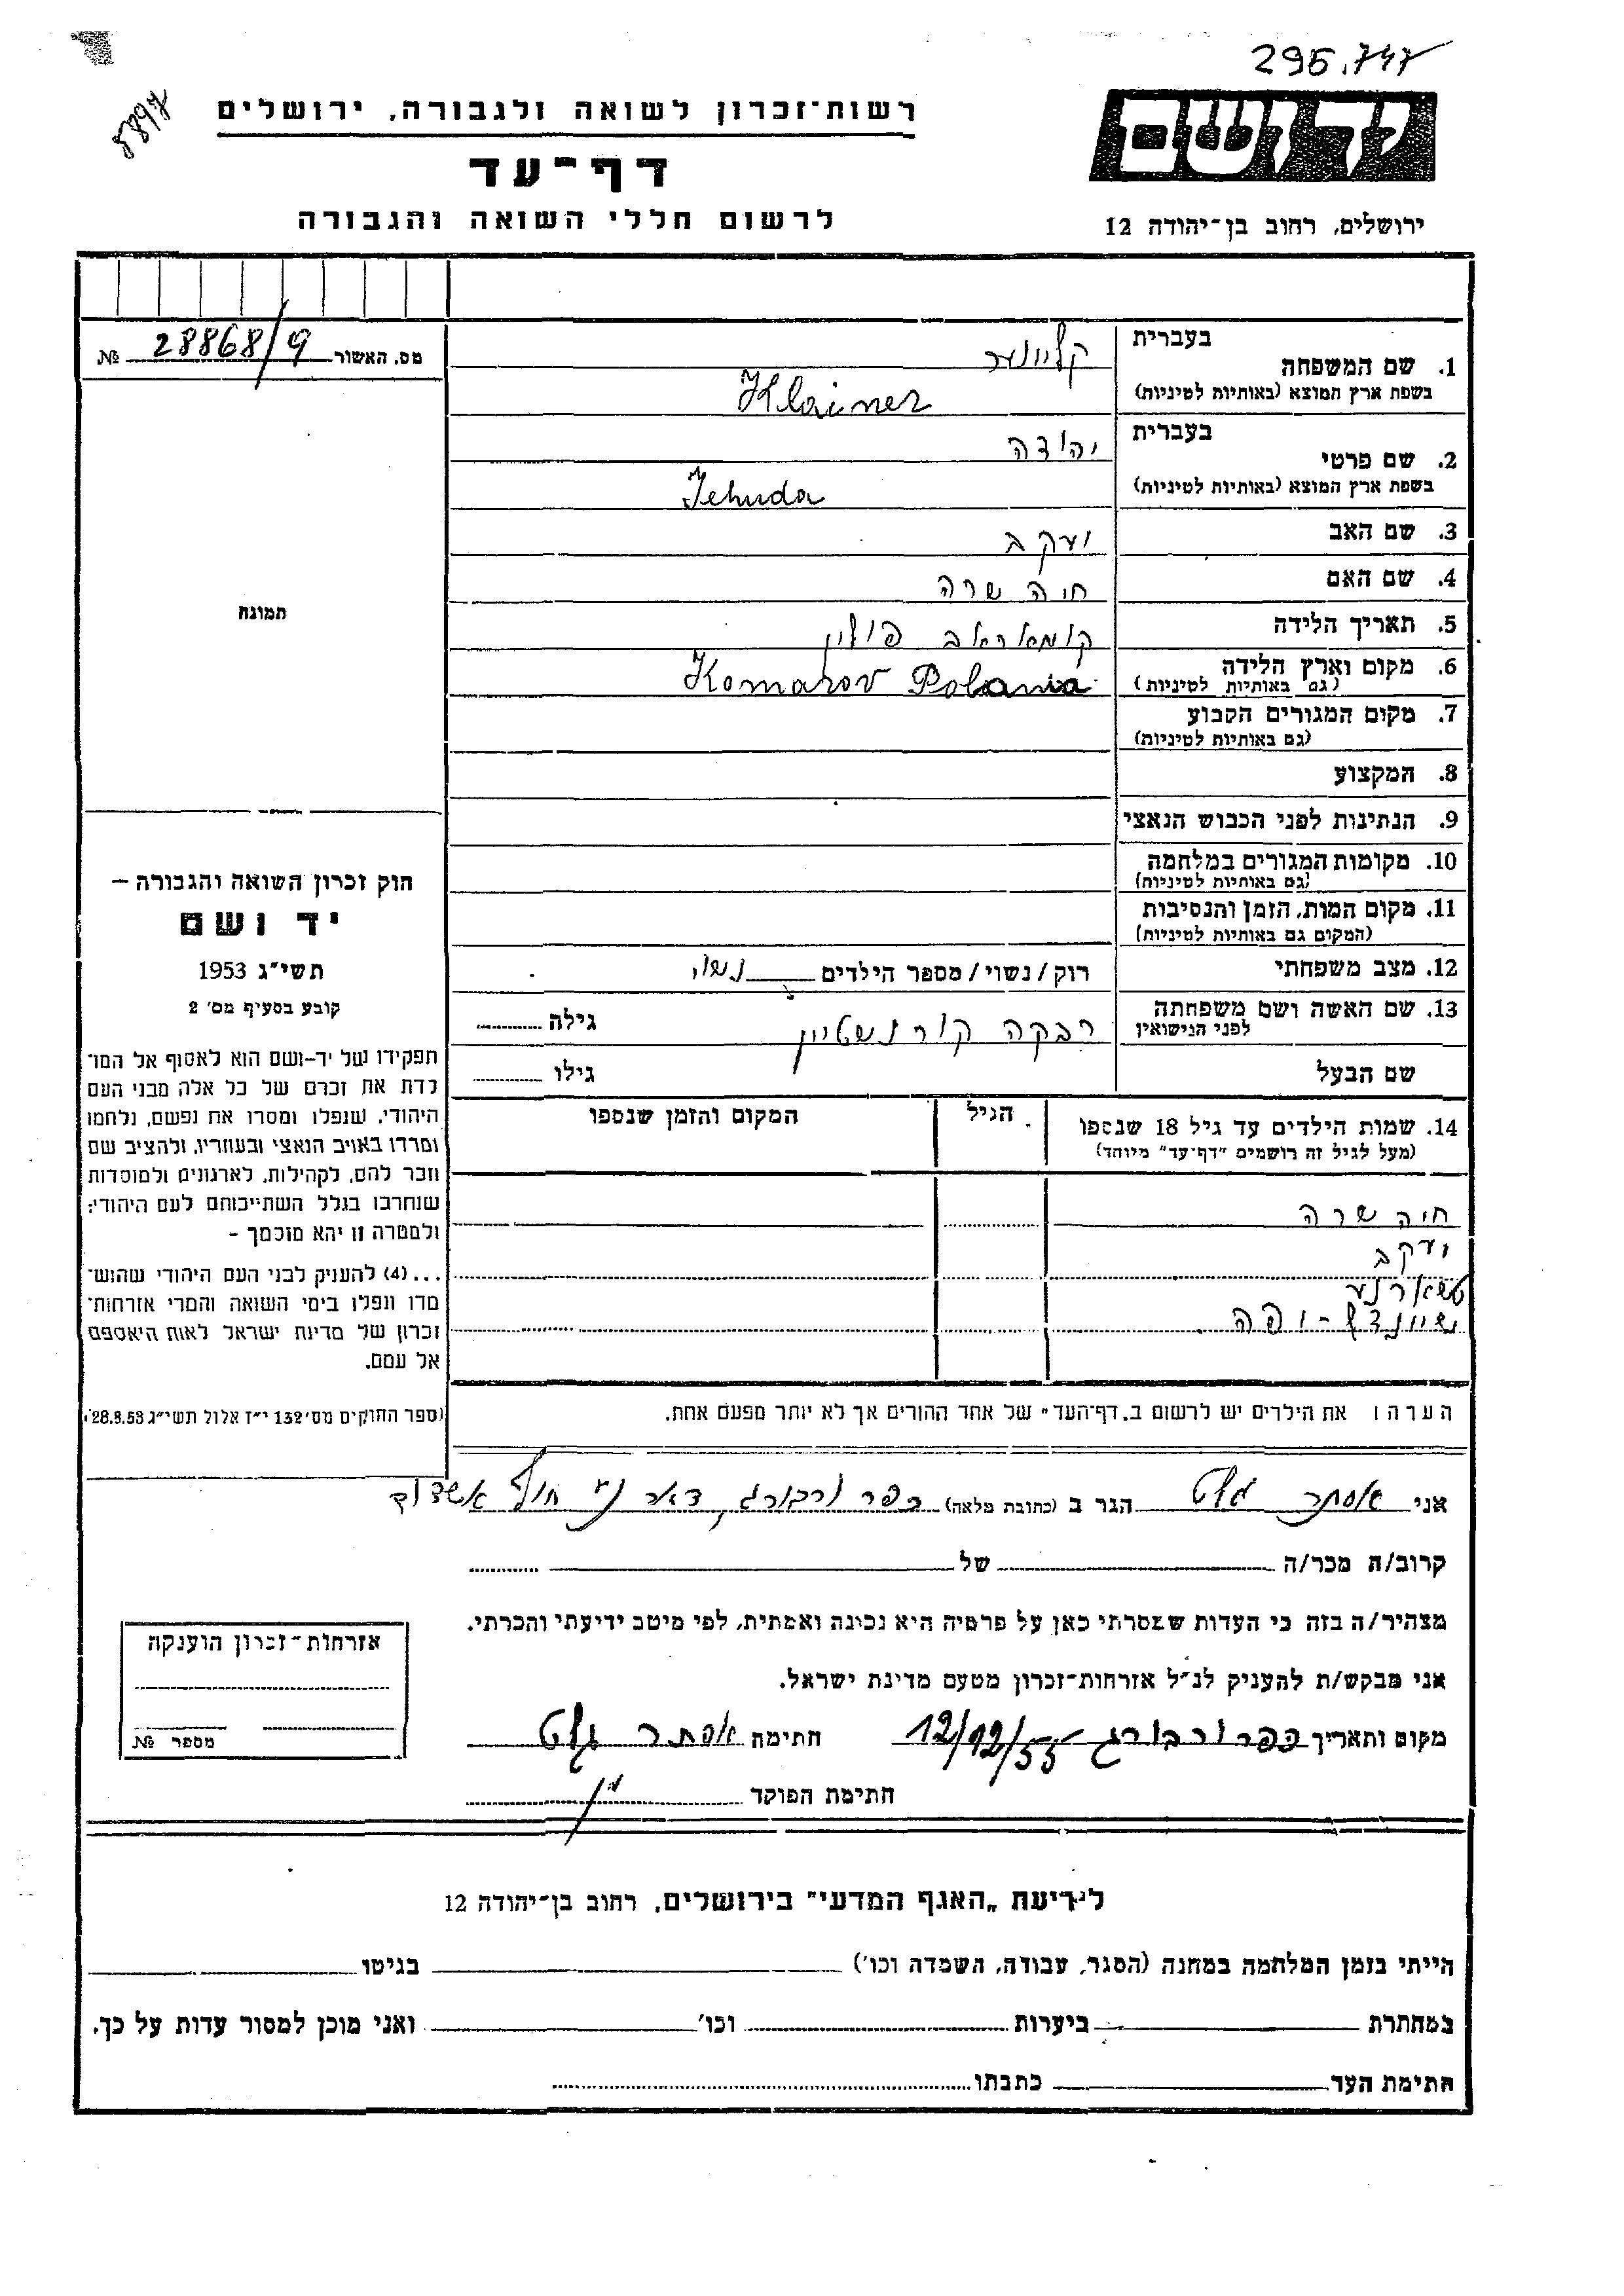 295.747
5897
רשות־זכרון לשואה ולגבורה, ירושלים
יד ושם
דף־עד
לרשום חללי השואה והגבורה
ירושלים, רחוב בן־יהודה 12
מס. האשור 28868/9 №
1. שם המשפחה
בעברית קליינער
בשפת ארץ המוצא (באותיות לטיניות) Klainer
2. שם פרטי
בעברית יהודה
בשפת ארץ המוצא (באותיות לטיניות) Jehuda
3. שם האב יעקב
4. שם האם חיה שרה
5. תאריך הלידה קומאראב פולין
6. מקום וארץ הלידה
(גם באותיות לטיניות) Komarov Polania
7. מקום המגורים הקבוע
(גם באותיות לטיניות)
8. המקצוע
9. הנתינות לפני הכבוש הנאצי
10. מקומות המגורים במלחמה
(גם באותיות לטיניות)
11. מקום המות, הזמן והנסיבות
(המקום גם באותיות לטיניות)
12. מצב משפחתי רוק/נשוי/מספר הילדים נשוי
13. שם האשה ושם משפחתה
לפני הנישואין רבקה קורנשטיין גילה
שם הבעל גילו
14. שמות הילדים עד גיל 18 שנספו
(מעל לגיל זה רושמים "דף־עד" מיוחד)
הגיל
המקום והזמן שנספו
חיה שרה
יעקב
טשארנע
שיינדל-יפה
הערה: את הילדים יש לרשום ב„דף־העד" של אחד ההורים אך לא יותר מפעם אחת.
תמונה
חוק זכרון השואה והגבורה –
יד ושם
תשי"ג 1953
קובע בסעיף מס' 2
תפקידו של יד-ושם הוא לאסוף אל המו־
לדת את זכרם של כל אלה מבני העם
היהודי, שנפלו ומסרו את נפשם, נלחמו
ומרדו באויב הנאצי ובעוזריו, ולהציב שם
וזכר להם, לקהילות, לארגונים ולמוסדות
שנחרבו בגלל השתייכותם לעם היהודי;
ולמטרה זו יהא מוסמך -
...(4) להעניק לבני העם היהודי שהוש־
מדו ונפלו בימי השואה והמרי אזרחות־
זכרון של מדינת ישראל לאות היאספם
אל עמם.
(ספר החוקים מס' 132 י"ז אלול תשי"ג 28.8.53)
אני אסתר גלט הגר ב (כתובת מלאה) כפר ורבורג, דאר נע חוף אשדוד
קרוב/ה מכר/ה של
מצהיר/ה בזה כי העדות שמסרתי כאן על פרטיה היא נכונה ואמתית, לפי מיטב ידיעתי והכרתי.
אני מבקש/ת להעניק לנ"ל אזרחות־זכרון מטעם מדינת ישראל.
מקום ותאריך כפר ורבורג 12/12/55 חתימה אסתר גלט
חתימת הפוקד
אזרחות־זכרון הוענקה
מספר №
לידיעת „האגף המדעי" בירושלים, רחוב בן־יהודה 12
הייתי בזמן המלחמה במחנה (הסגר, עבודה, השמדה וכו') בגיטו
במחתרת ביערות וכו' ואני מוכן למסור עדות על כך.
חתימת העד כתבתו